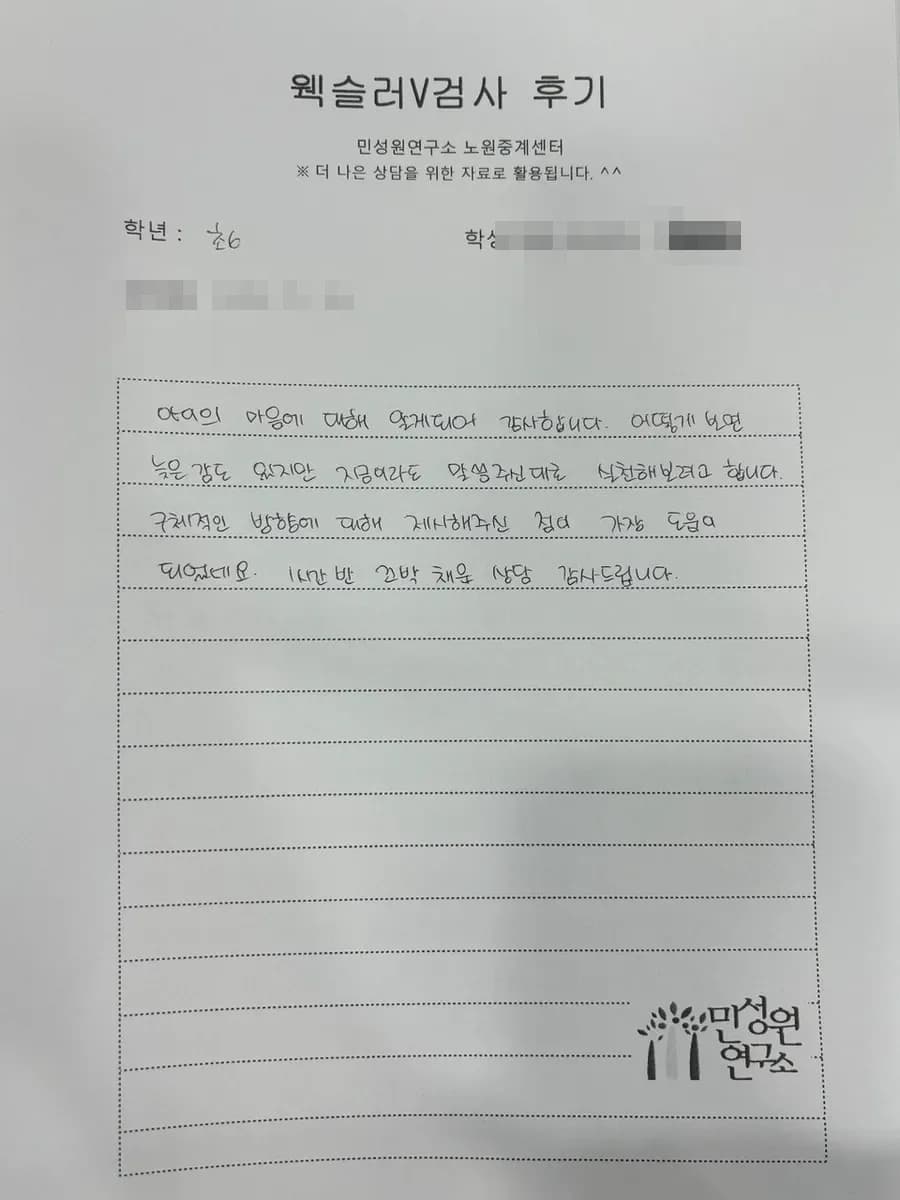 웩슬러V검사 후기
민성원연구소 노원중계센터
※ 더 나은 상담을 위한 자료로 활용됩니다. ^^
학년 : 초6
학생
아이의 마음에 대해 알게되어 감사합니다. 어떻게 보면
늦은감도 있지만 지금이라도 말씀주신대로 실천해보려고 합니다.
구체적인 방향에 대해 제시해주신 점이 가장 도움이
되었네요. 1시간 반 꼬박 채운 상담 감사드립니다.
민성원
연구소